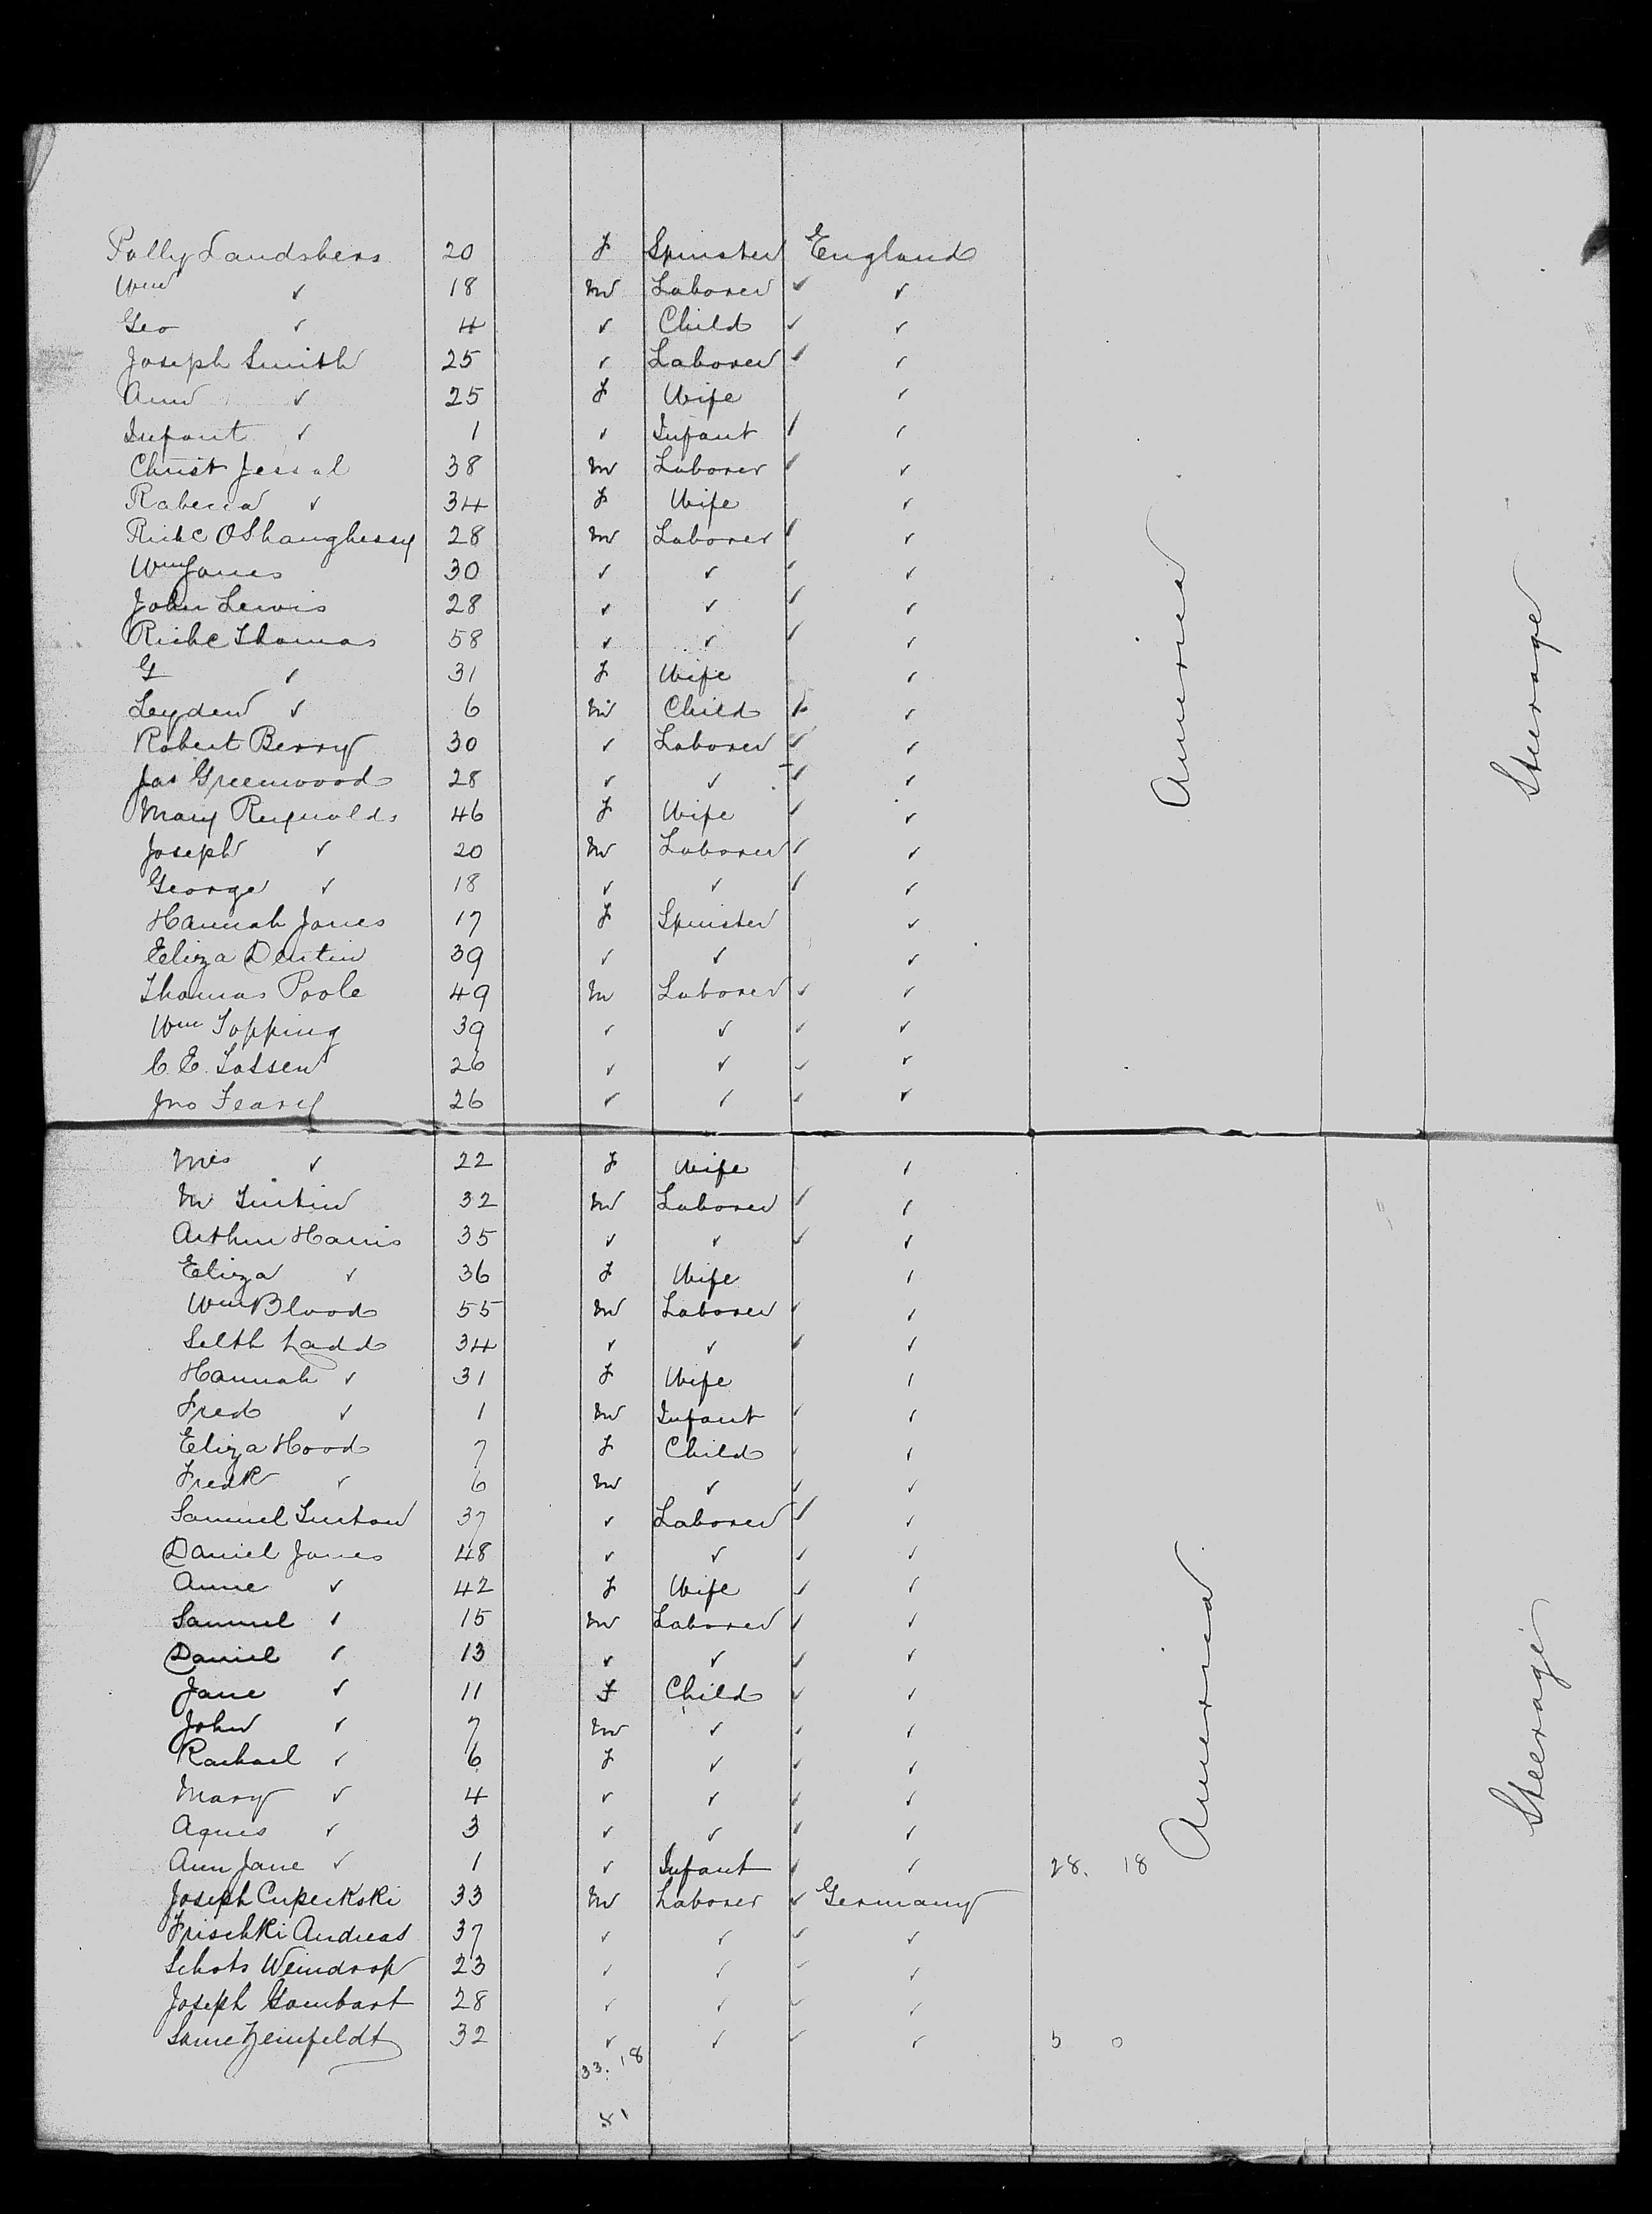 Polly Landsbers 20 F Spinster England
Wm ✓ 18 M Laborer ✓ ✓
Geo ✓ 4 ✓ Child ✓ ✓
Joseph Smith 25 ✓ Laborer ✓ ✓
Ann ✓ 25 F Wife ✓
Infant ✓ 1 ✓ Infant ✓ ✓
Christ Jessal 38 M Laborer ✓ ✓
Rabecca ✓ 34 F Wife ✓
Richd OShaughessy 28 M Laborer ✓ ✓
Wm Jones 30 ✓ ✓ ✓ ✓
John Lewis 28 ✓ ✓ ✓ ✓
Richd Thomas 58 ✓ ✓ ✓ ✓
G ✓ 31 F Wife ✓
Leyden ✓ 6 M Child ✓ ✓
Robert Berry 30 ✓ Laborer ✓ ✓
Jas Greenwood 28 ✓ ✓ ✓ ✓
Mary Reynolds 46 F Wife ✓ ✓
Joseph ✓ 20 M Laborer ✓ ✓
George ✓ 18 ✓ ✓ ✓ ✓
Hannah Jones 17 F Spinster ✓
Eliza Dentin 39 ✓ ✓ ✓
Thomas Poole 49 M Laborer ✓ ✓
Wm Topping 39 ✓ ✓ ✓ ✓
C. E. Lassen 26 ✓ ✓ ✓ ✓
Jno Fearey 26 ✓ ✓ ✓ ✓
America
Steerage
Mrs ✓ 22 F Wife ✓
M 32 M Laborer ✓ ✓
Arthur Harris 35 ✓ ✓ ✓ ✓
Eliza ✓ 36 F Wife ✓
Wm Blood 55 M Laborer ✓ ✓
Selth Ladd 34 ✓ ✓ ✓ ✓
Hannah ✓ 31 F Wife ✓
Fred ✓ 1 M Infant ✓ ✓
Eliza Hood 7 F Child ✓ ✓
Fredk ✓ 6 M ✓ ✓ ✓
Samuel 37 ✓ Laborer ✓ ✓
Daniel Jones 48 ✓ ✓ ✓ ✓
Anne ✓ 42 F Wife ✓ ✓
Samuel ✓ 15 M Laborer ✓ ✓
Daniel ✓ 13 ✓ ✓ ✓ ✓
Jane ✓ 11 F Child ✓ ✓
John ✓ 7 M ✓ ✓ ✓
Rachael ✓ 6 F ✓ ✓ ✓
Mary ✓ 4 ✓ ✓ ✓ ✓
Agnes ✓ 3 ✓ ✓ ✓ ✓
Ann Jane ✓ 1 ✓ Infant ✓ ✓ 28. 18
Joseph Cuperkski 33 M Laborer ✓ Germany
Frischki Andreas 37 ✓ ✓ ✓ ✓
Schots Weindrop 23 ✓ ✓ ✓ ✓
Joseph Gombart 28 ✓ ✓ ✓ ✓
Zeinfeldt 32 ✓ ✓ ✓ ✓ 5 0
America
Steerage
33. 18